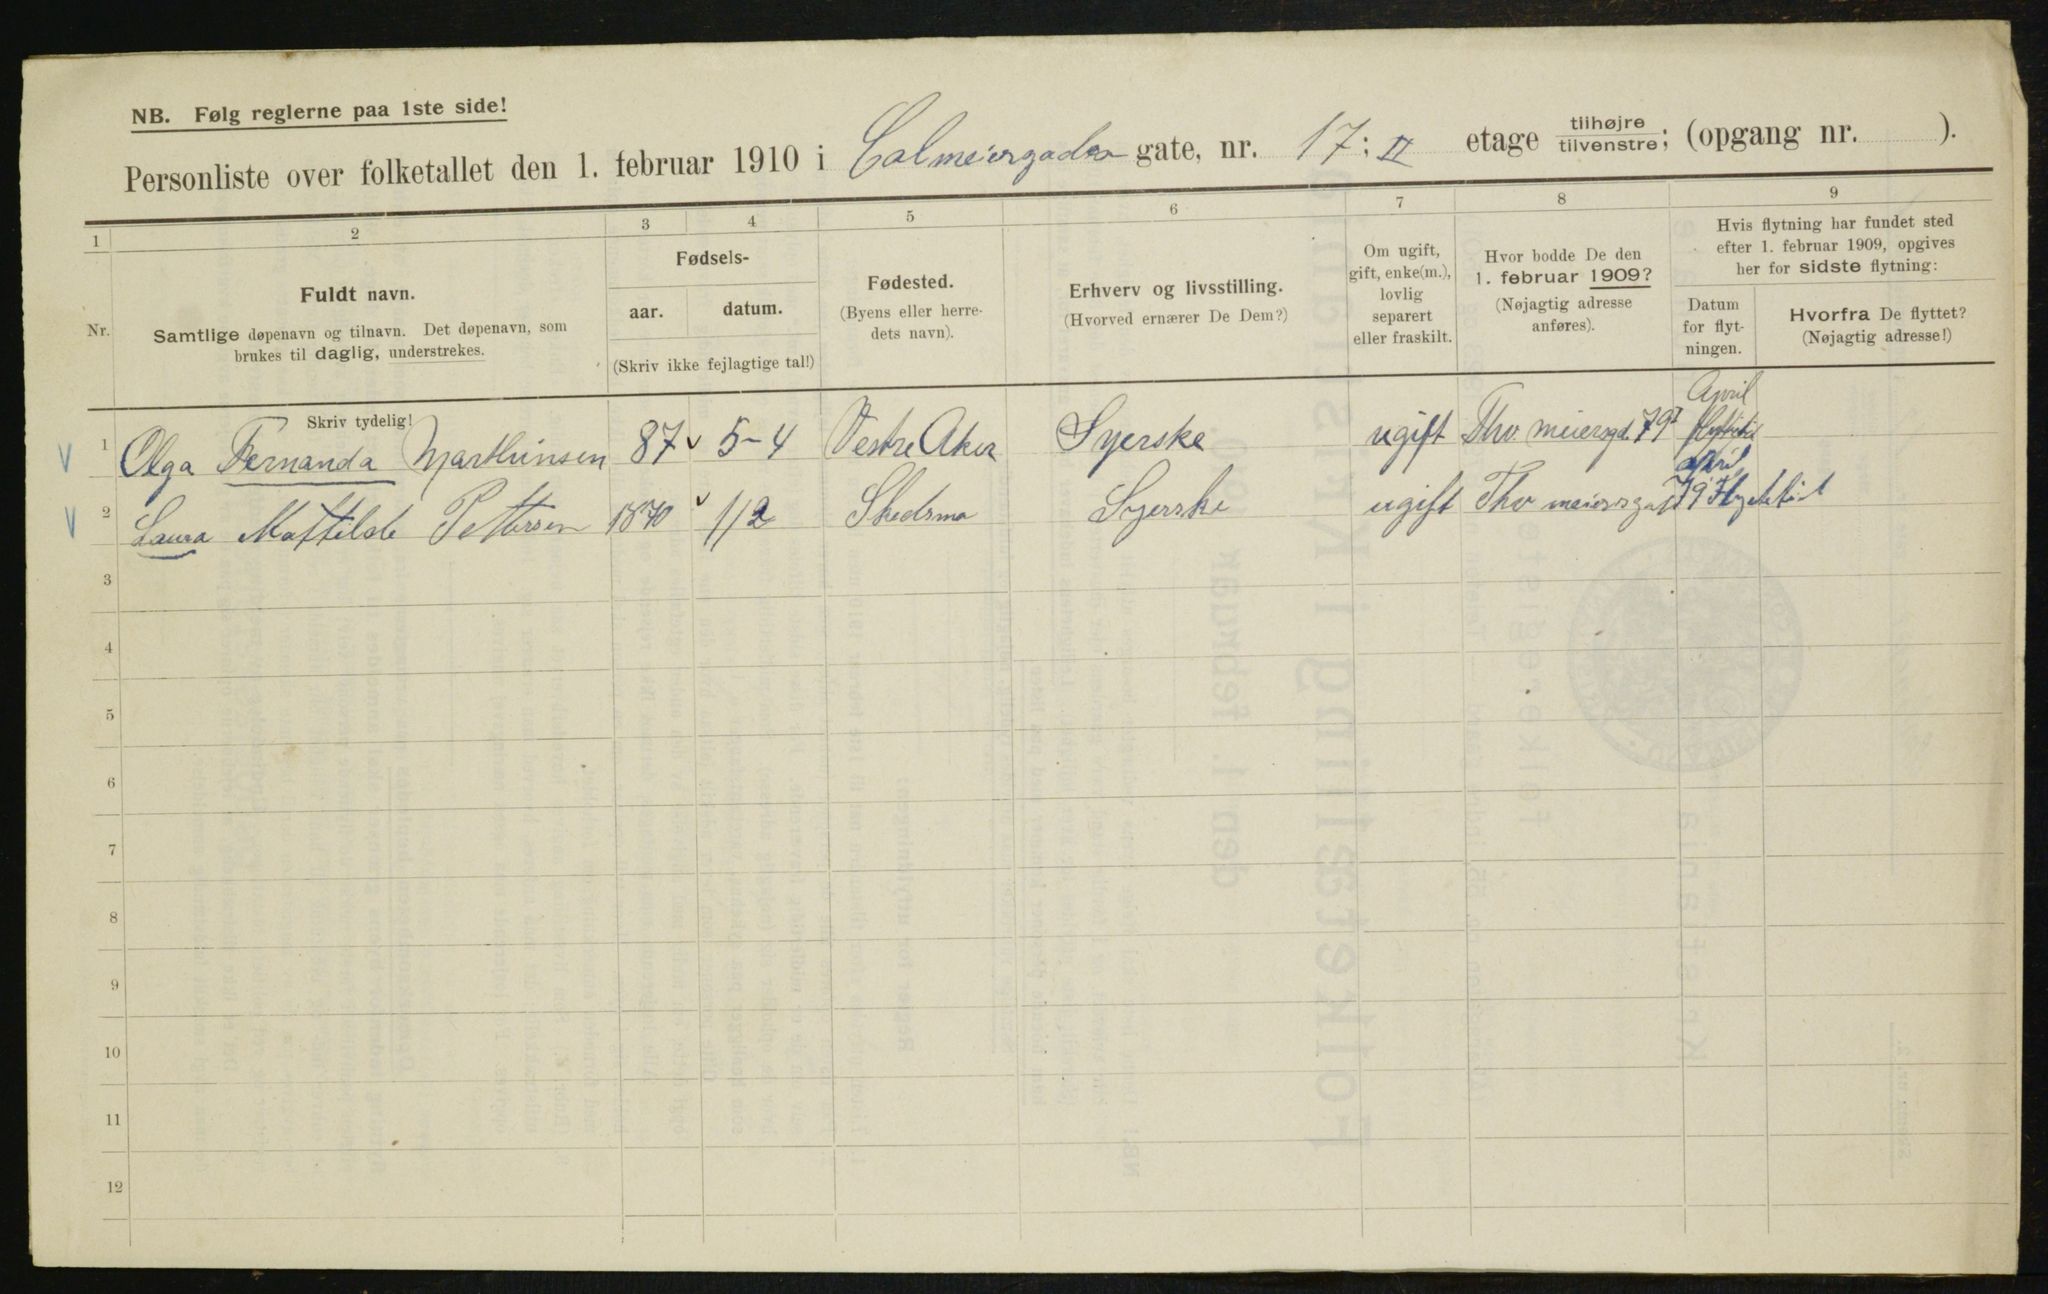 NB. Følg reglerne paa 1ste side!
Personliste over folketallet den 1. februar 1910 i Calmeiergaden gate, nr. 17: II etage tilhøjre tilvenstre; (opgang nr. ).
1 2 3 4 5 6 7 8 9
Nr.
Fuldt navn.
Samtlige døpenavn og tilnavn. Det døpenavn, som
brukes til daglig, understrekes.
Skriv tydelig!
Fødsels-
aar. datum.
(Skriv ikke fejlagtige tal!)
Fødested.
(Byens eller herre-
dets navn).
Erhverv og livsstilling.
(Hvorved ernærer De Dem?)
Om ugift,
gift, enke(m.),
lovlig
separert
eller fraskilt.
Hvor bodde De den
1. februar 1909?
(Nøjagtig adresse
anføres).
Hvis flytning har fundet sted
efter 1. februar 1909, opgives
her for sidste flytning:
Datum
for flyt-
ningen.
Hvorfra De flyttet?
(Nøjagtig adresse!)
1 Olga Fernanda Marthinsen 87 5-4 Vestre Aker Syerske ugift Tho meiersgd. 79 April
2 Laura Mathilde Pettersen 1870 1/2 Skedsmo Syerske ugift Tho meiersgat 79 april
3
4
5
6
7
8
9
10
11
12